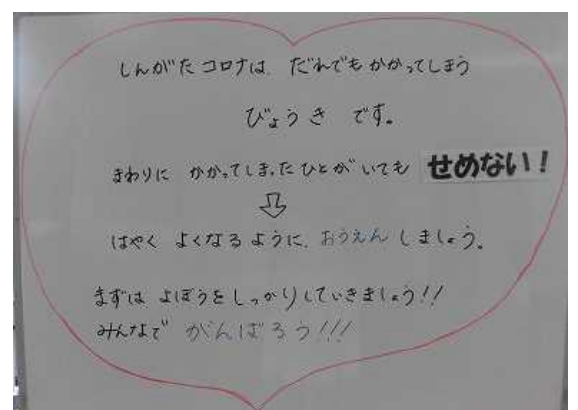 しんがたコロナは、だれでもかかってしまう
びょうき です。
まわりに かかってしまったひとが いても せめない!
⇩
はやく よくなる ように、おうえん しましょう。
まずは よぼうを しっかりしていきましょう!!
みんなで がんばろう!!!